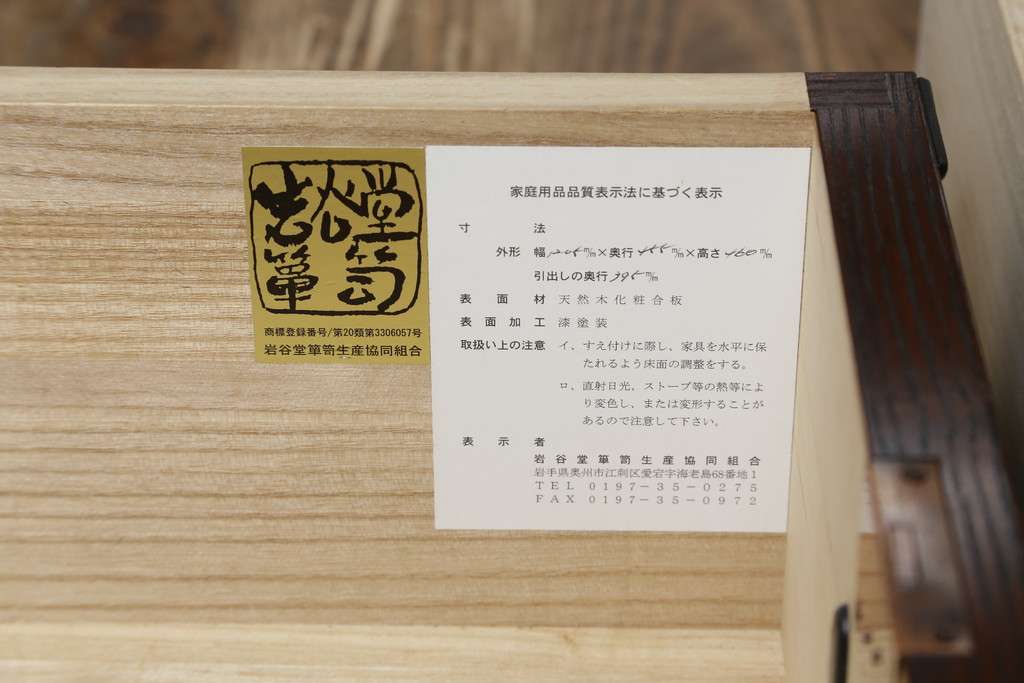 岩谷堂
簞笥
商標登録番号/第20類第3306057号
岩谷堂簞笥生産協同組合
家庭用品品質表示法に基づく表示
寸法
外形 幅 m/m×奥行 455 m/m×高さ 460 m/m
引出しの奥行 395 m/m
表面材 天然木化粧合板
表面加工 漆塗装
取扱い上の注意 イ、すえ付けに際し、家具を水平に保
たれるよう床面の調整をする。
ロ、直射日光、ストーブ等の熱等によ
り変色し、または変形することが
あるので注意して下さい。
表示者
岩谷堂簞笥生産協同組合
岩手県奥州市江刺区愛宕字海老島68番地1
TEL 0197-35-0275
FAX 0197-35-0972